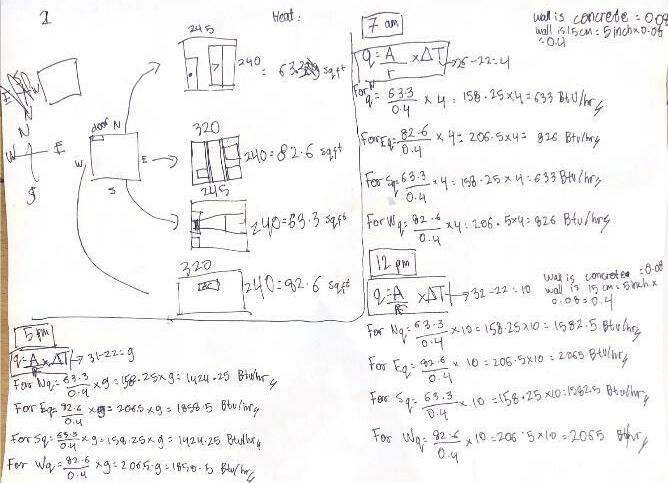 1
Heat:
245
240
= 63.3 sq ft
N
W E
S
door N
W E
S
320
240=82.6 sqft
245
240=63.3 sqft
320
240=82.6 sqft
7 am
wall is concrete = 0.08
wall is 15cm = 5inch x 0.08
= 0.4
q = A/r x ΔT → 26-22=4
For N q = 63.3/0.4 x 4 = 158.25 x 4 = 633 BtU/hr
For Eq = 82.6/0.4 x 4 = 206.5 x 4 = 826 Btu/hr
For Sq = 63.3/0.4 x 4 = 158.25 x 4 = 633 Btu/hr
For Wq = 82.6/0.4 x 4 = 206.5 x 4 = 826 Btu/hr
12 pm
wall is concrete = 0.08
wall is 15cm = 5inch x
0.08 = 0.4
q = A/R x ΔT → 32-22=10
For Nq = 63.3/0.4 x 10 = 158.25 x 10 = 1582.5 Btu/hr
For Eq = 82.6/0.4 x 10 = 206.5 x 10 = 2065 Btu/hr
For Sq = 63.3/0.4 x 10 = 158.25 x 10 = 1582.5 Btu/hr
For Wq = 82.6/0.4 x 10 = 206.5 x 10 = 2065 Btu/hr
5 pm
q = A/R x ΔT → 31-22=9
For Nq = 63.3/0.4 x 9 = 158.25 x 9 = 1424.25 Btu/hr
For Eq = 82.6/0.4 x 9 = 206.5 x 9 = 1858.5 Btu/hr
For Sq = 63.3/0.4 x 9 = 158.25 x 9 = 1424.25 Btu/hr
For Wq = 82.6/0.4 x 9 = 206.5 · 9 = 1858.5 Btu/hr